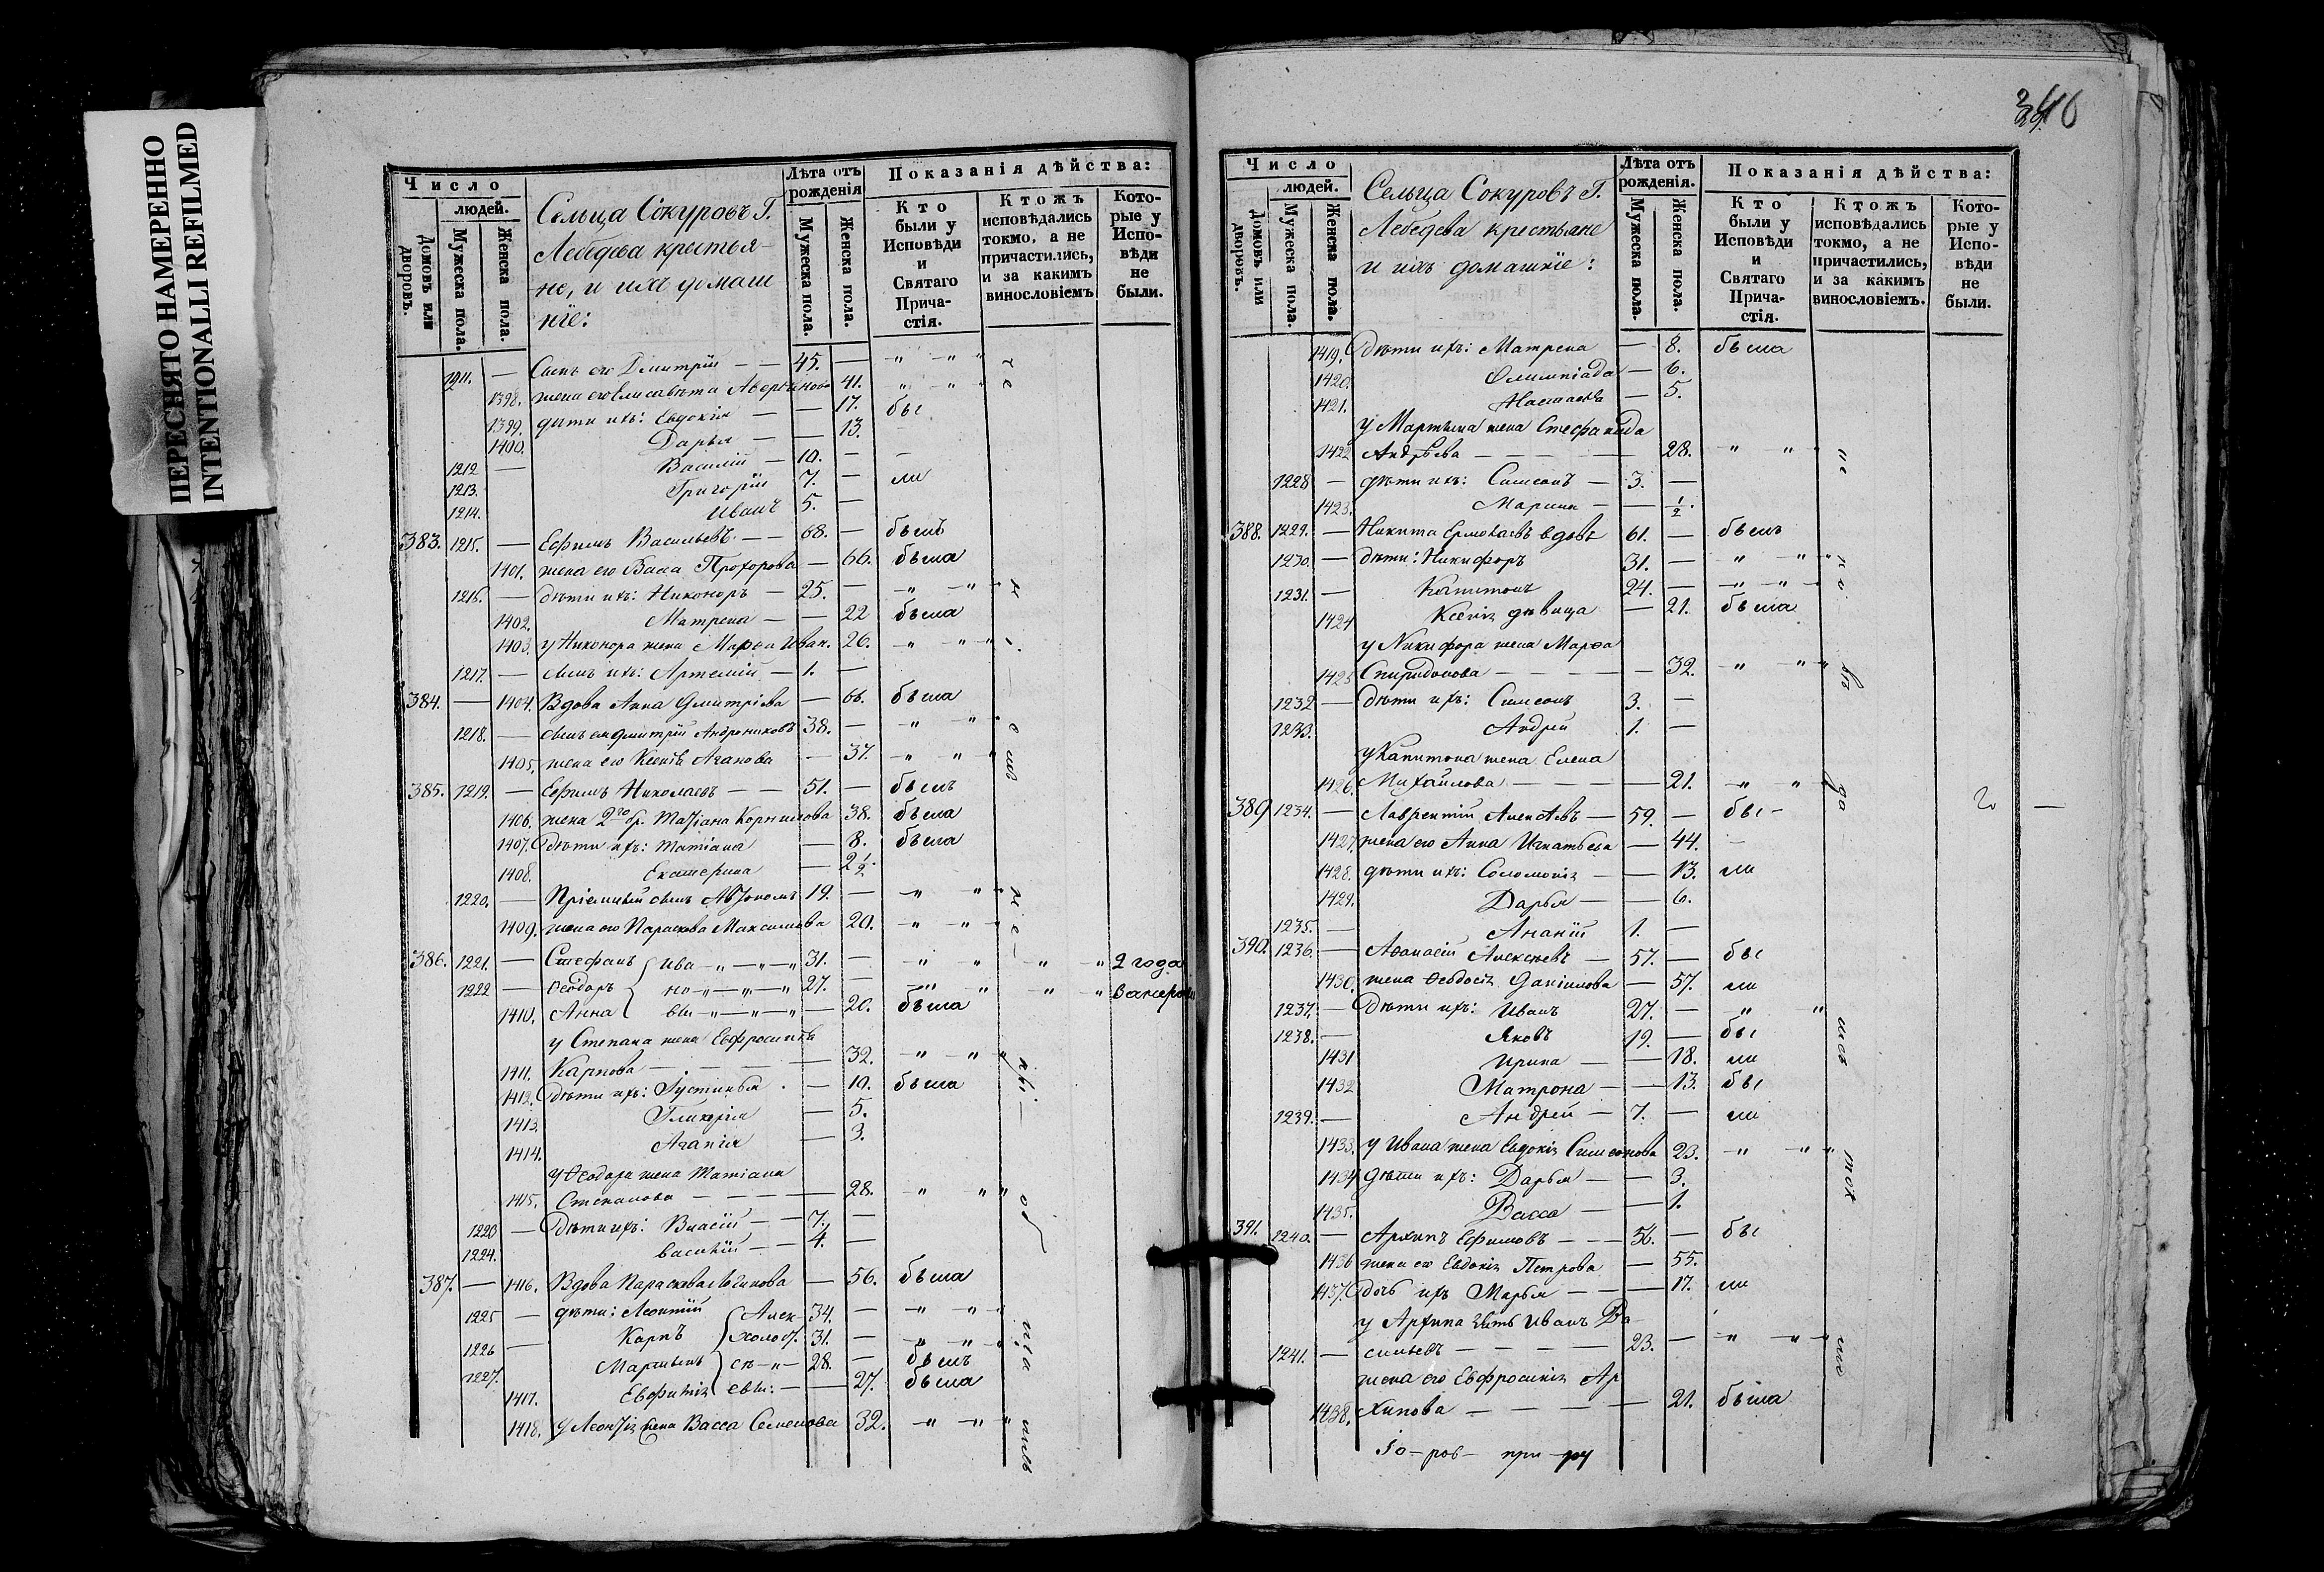 ПЕРЕСНЯТО НАМЕРЕННО
INTENTIONALLI REFILMED
Число
людей.
Домовъ или дворовъ.
Мужеска пола.
Женска пола.
Сельца Сокуровъ Г.
Лебедева крестья-
не, и ихъ домаш
нiе:
Лѣта отъ рожденiя
Мужеска пола.
Женска пола.
Показанiя дѣйства:
Кто были у Исповѣди и Святаго Прича-стiя.
Ктожъ исповѣдались токмо, а не причастились, и за какимъ винословiемъ
Кото-рые у Испо-вѣди не были.
1211. — Сынъ его Димитрiй — — 45. — „ „ „
1398. жена его Елисавѣта 41. „ „ „
1399. дѣти ихъ: Евдокiя — — 17. бы
1400. Дарья — — 13.
1212 — Василiй — 10. — —
1213. Григорiй 7. — ли
1214. Иванъ 5. —
383. 1215. — Ефимъ Васильевъ — — 68. — былъ
1401. жена его Васса Прохорова — 66. была
1216. — дѣти ихъ: Никоноръ — 25. — „ „ „
1402. Матрена — — 22 была
1403. у Никонора жена Марѳа Иван. 26. „ „ „
1217. — сынъ ихъ: Артемiй — 1. —
384. — 1404. Вдова Анна Дмитрiева — 66. была
1218. — сынъ ея Дмитрiй Андрониковъ 38. — „ „ „
1405. жена его Ксенiя Агапова — 37. „ „ „
385. 1219. — Ефимъ Николаевъ — — 51. — былъ
1406. жена 2го бр. Татiана Корнилова 38. была
1407. Дѣти ихъ: Татiана — 8. была
1408. Екатерина — 2 1/2.
1220. — Прiемный сынъ Автономъ 19. — „ „ „
1409. жена его Параскева Максимова 20. „ „ „
386. 1221. — Стефанъ Ива „ „ „ 31. — „ „ „ „ 2 года
1222 — Ѳеодоръ но „ „ „ 27. — „ „ „ „
1410. Анна вы „ „ „ — 20. была
у Степана жена Евфросинiя
1411. Карпова — — — — 32. „ „ „
1412. Дѣти ихъ: Iустинья — 10. была
1413. Гликерiя — 5.
1414. Агапiя — 3.
у Ѳеодора жена Татiана
1415. Степанова — — — — 28. „ „ „
1223 — Дѣти ихъ: Власiй — — 7. —
1224. Василiй — — 4. —
387. — 1416. Вдова Параскева Логинова — 56. была
1225 — дѣти: Леонтiй 34. — „ „ „
1226 — Карпъ 31. — „ „ „
1227. Мартынъ 28. — былъ
1417. Евфимiя 27. была
1418. у Леонтiя жена Васса Семенова 32. „ „ „
Число
людей.
Домовъ или дворовъ.
Мужеска пола.
Женска пола.
Сельца Сокуровъ Г.
Лебедева крестьяне
и ихъ домашнiе:
Лѣта отъ рожденiя.
Мужеска пола.
Женска пола.
Показанiя дѣйства:
Кто были у Исповѣди и Святаго Прича-стiя.
Ктожъ исповѣдались токмо, а не причастились, и за какимъ винословiемъ.
Кото-рые у Испо-вѣди не были.
1419. Дѣти ихъ: Матрена — 8. была
1420. Олимпiада — 6.
1421. Настасья — 5.
у Мартына жена Стефанида
1422 Андрѣева — — — — 28. „ „ „
1228 — дѣти ихъ: Симеонъ — 3. —
1423. Марина — — 1/2.
388. 1229. — Никита Ермолаевъ вдовъ 61. — былъ
1230. — дѣти: Никифоръ 31. — „ „ „
1231. — Капитонъ 24. — „ „ „
1424 Ксенiя дѣвица — 21. была
у Никифора жена Марѳа
1425 Спиридонова — — — — 32. „ „ „
1232 — Дѣти ихъ: Симеонъ 3. —
1233. Андрей 1. —
у Капитона жена Елена
1426. Михайлова — — — — 21. „ „ „
389 1234. — Лаврентiй Алексѣевъ — 59. — бы
1427. жена его Анна Игнатьева — 44. —
1428. дѣти ихъ: Соломонiя — — 13. ли
1429. Дарья — — 6.
1235. — Ананiй 1. —
390. 1236. — Аѳанасiй Алексѣевъ — 57. — бы
1430. жена Ѳеодосiя Данiилова — 57. ли
1237. — Дѣти ихъ: Иванъ 27. — „ „
1238. — Яковъ 19. — бы
1431 Ирина — — 18. ли
1432 Матрона — — 13. бы
1239. — Андрей — 7. — ли
1433. у Ивана жена Евдокiя Симеонова 23. „ „ „
1434 дѣти ихъ: Дарья — — 3.
1435. Васса — — 1.
391. 1240. — Архипъ Ефимовъ — — — 56. — бы
1436 жена его Евдокiя Петрова — 55.
1437. дочь ихъ Марья — — — 17. ли
у Архипа зять Иванъ Ва-
1241. — сильевъ — — — — 23. — „ „ „
жена его Евфросинiя Ар
1438. хипова — — — — 21. была